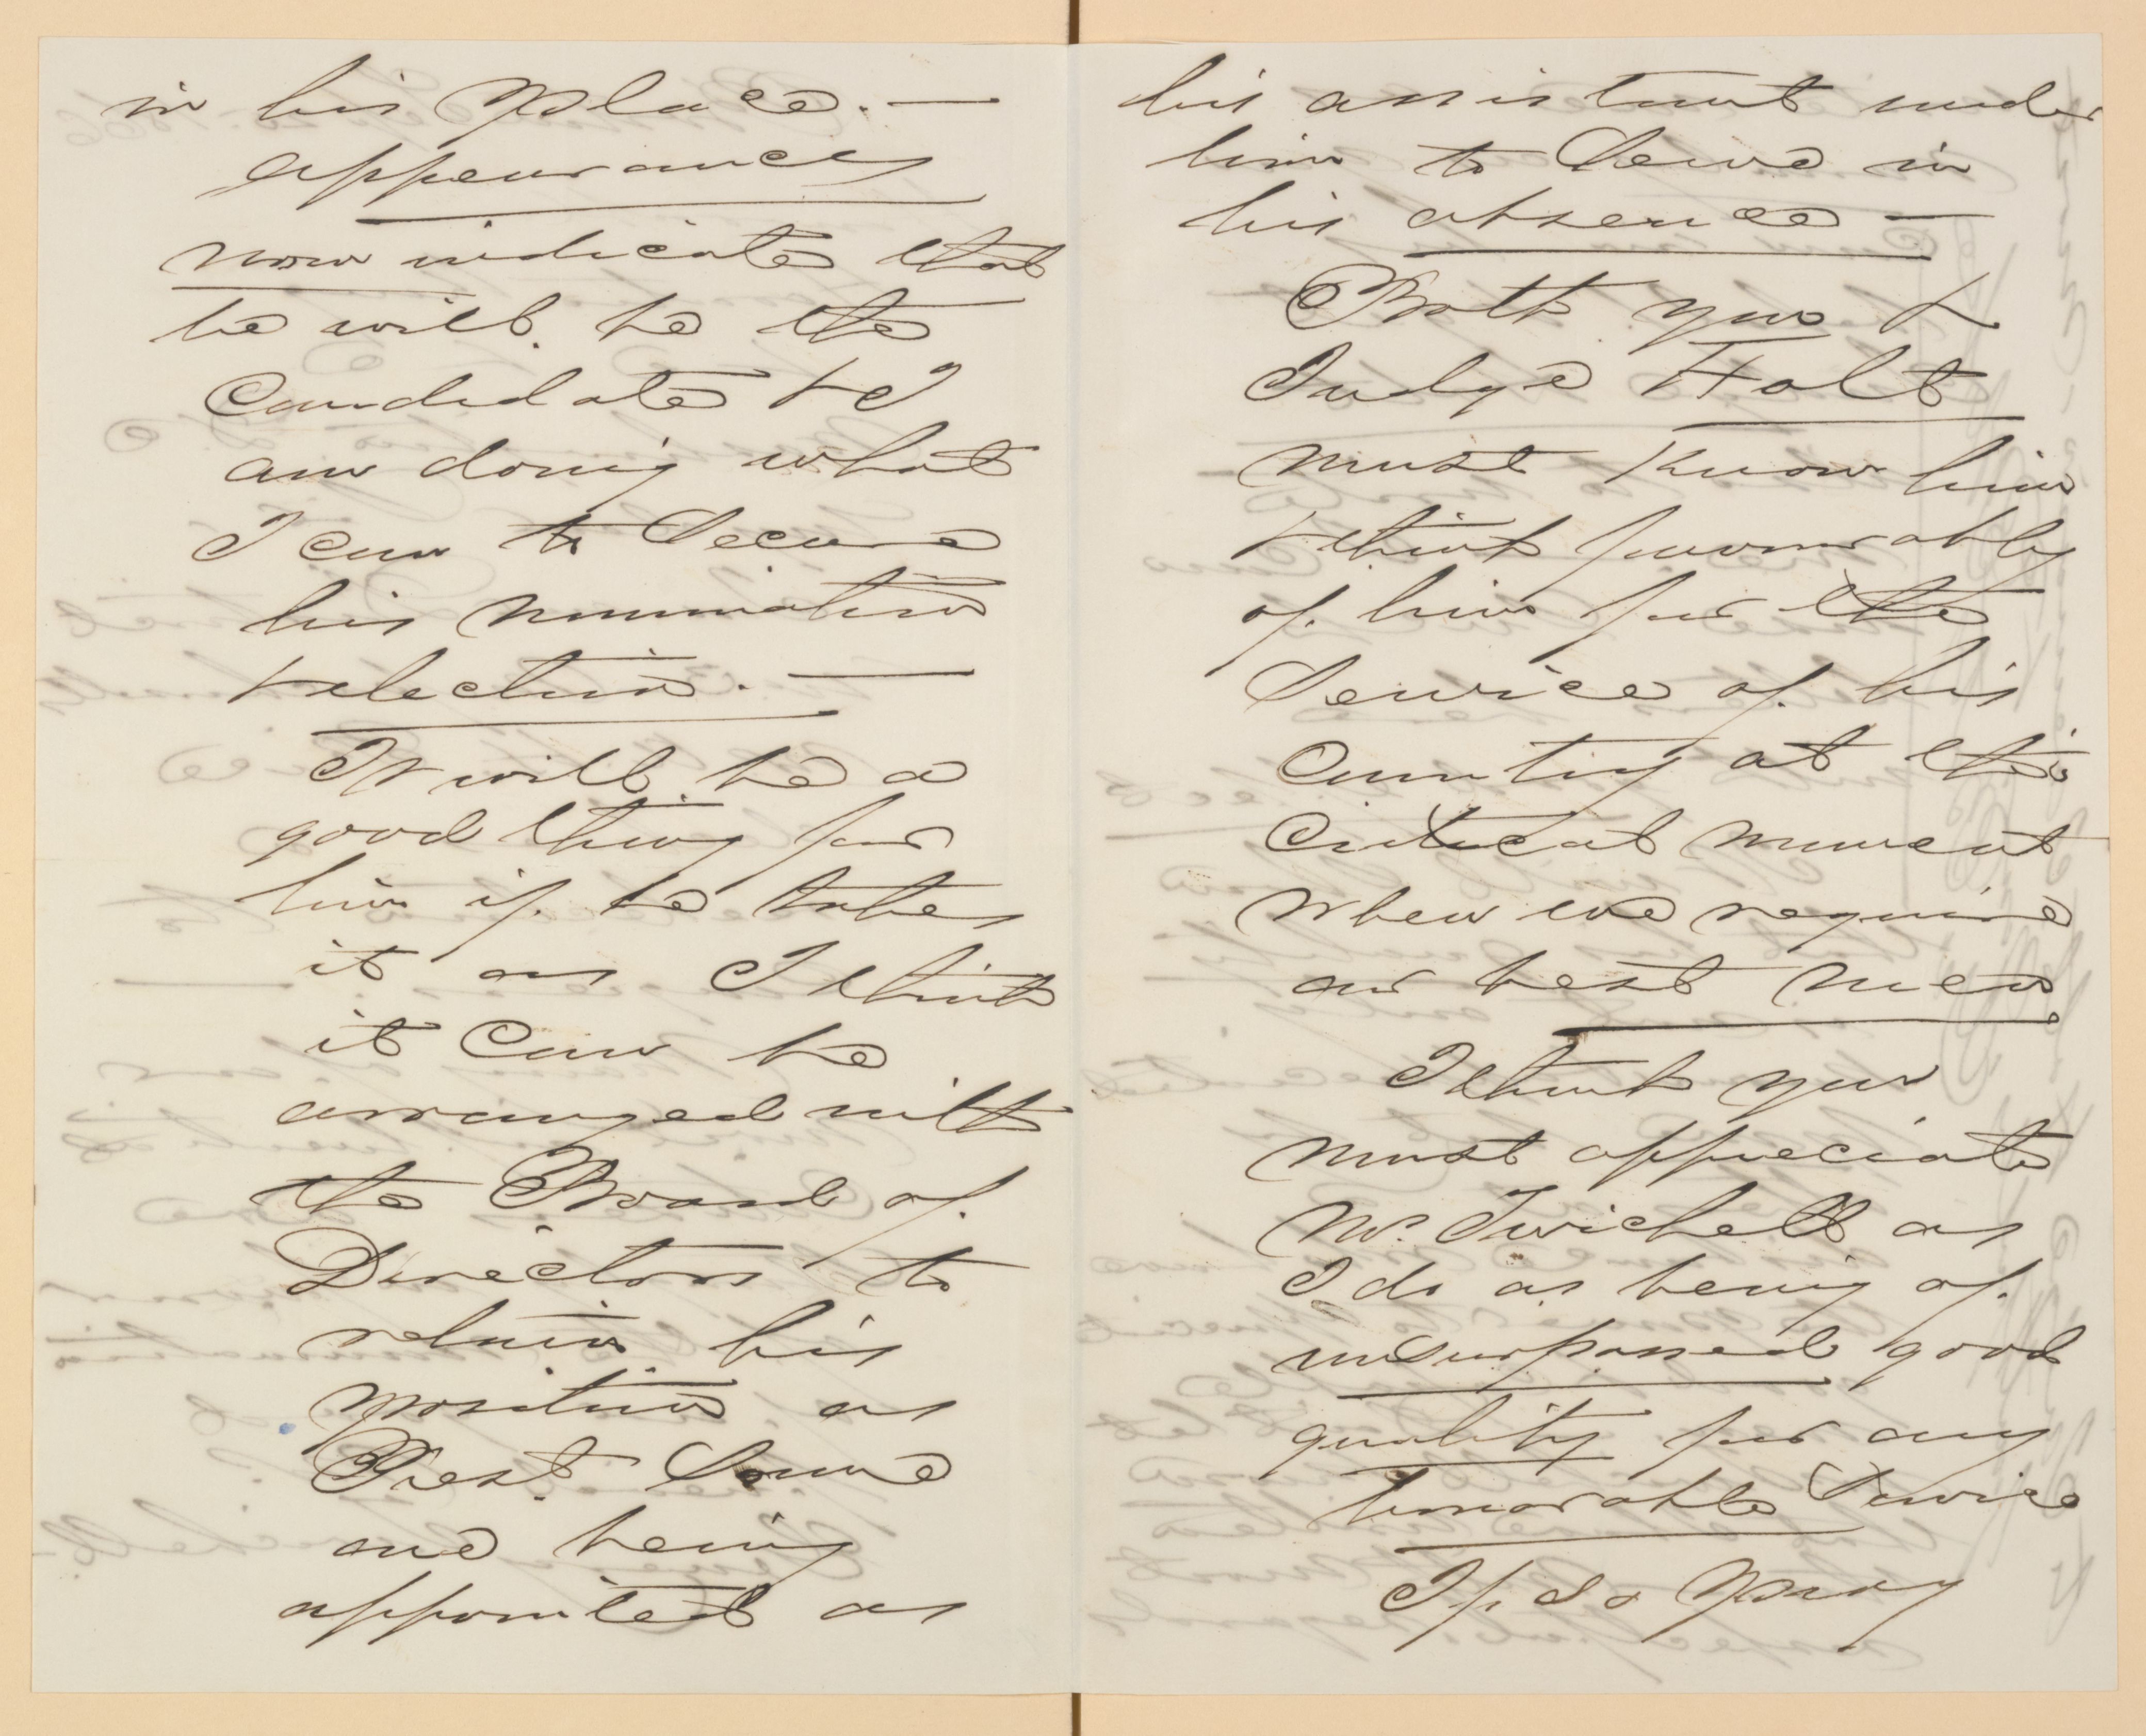 in his place. —
appearances
now indicate that
he will be the
Candidate & I
am doing what
I can to Secure
his nomination
& election. —
It will be a
good thing for
him if he takes
it as I think
it can be
arranged with
the Board of
Directors to
retain his
position as
Prest. Some
one being
appointed as
his assistant under
him to Serve in
his absence —
Both you &
Judge Holt
must Know him
& think favourably
of him for the
Service of his
Country at this
Critical moment
when we require
our best men
I think you
must appreciate
Mr. Twichell as
I do as being of
unsurpassed good
quality for any
honorable Service
If so pray